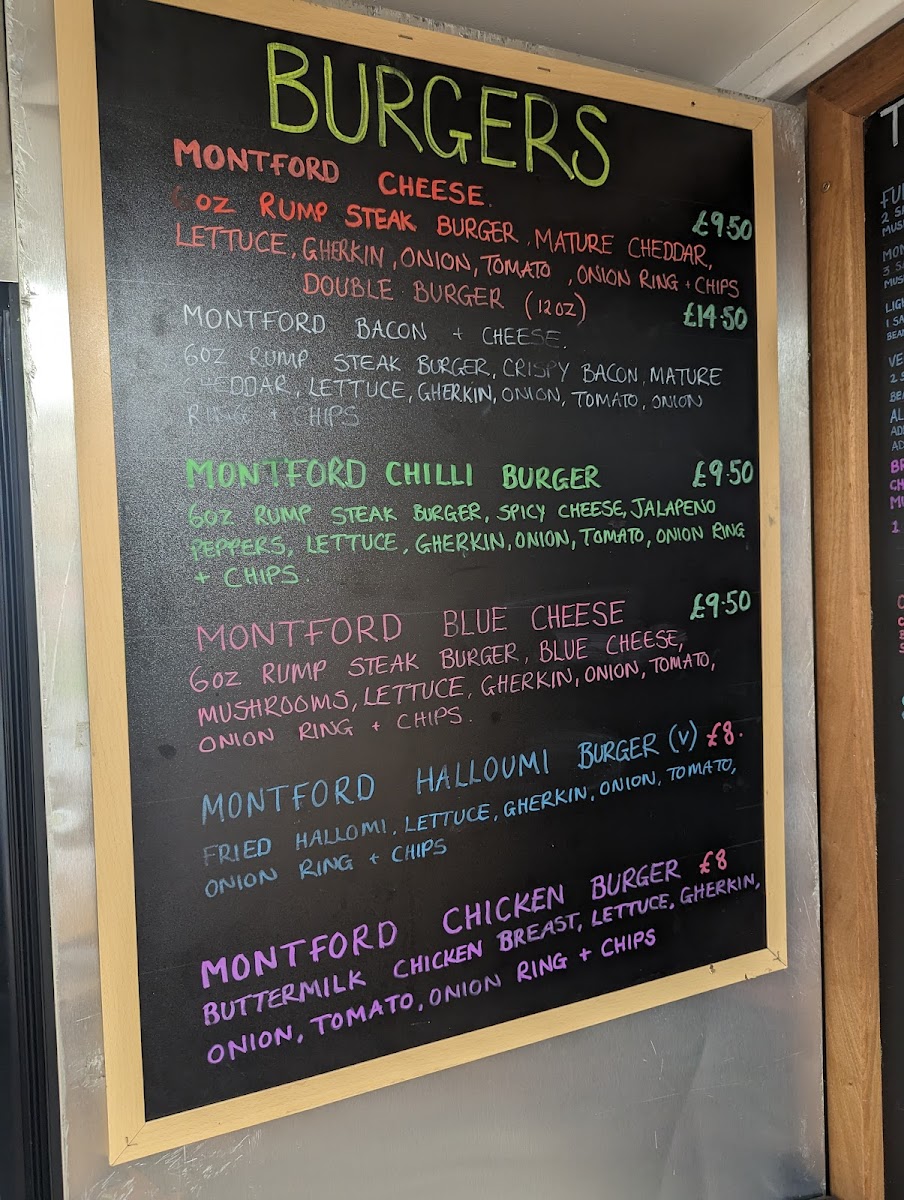 BURGERS
MONTFORD CHEESE.
6OZ RUMP STEAK BURGER, MATURE CHEDDAR, £9.50
LETTUCE, GHERKIN, ONION, TOMATO, ONION RING + CHIPS
DOUBLE BURGER (12OZ) £14.50
MONTFORD BACON + CHEESE.
6OZ RUMP STEAK BURGER, CRISPY BACON, MATURE
CHEDDAR, LETTUCE, GHERKIN, ONION, TOMATO, ONION
RING + CHIPS
MONTFORD CHILLI BURGER £9.50
6OZ RUMP STEAK BURGER, SPICY CHEESE, JALAPENO
PEPPERS, LETTUCE, GHERKIN, ONION, TOMATO, ONION RING
+ CHIPS.
MONTFORD BLUE CHEESE £9.50
6OZ RUMP STEAK BURGER, BLUE CHEESE,
MUSHROOMS, LETTUCE, GHERKIN, ONION, TOMATO,
ONION RING + CHIPS.
MONTFORD HALLOUMI BURGER (V) £8.
FRIED HALLOMI, LETTUCE, GHERKIN, ONION, TOMATO,
ONION RING + CHIPS
MONTFORD CHICKEN BURGER £8
BUTTERMILK CHICKEN BREAST, LETTUCE, GHERKIN,
ONION, TOMATO, ONION RING + CHIPS